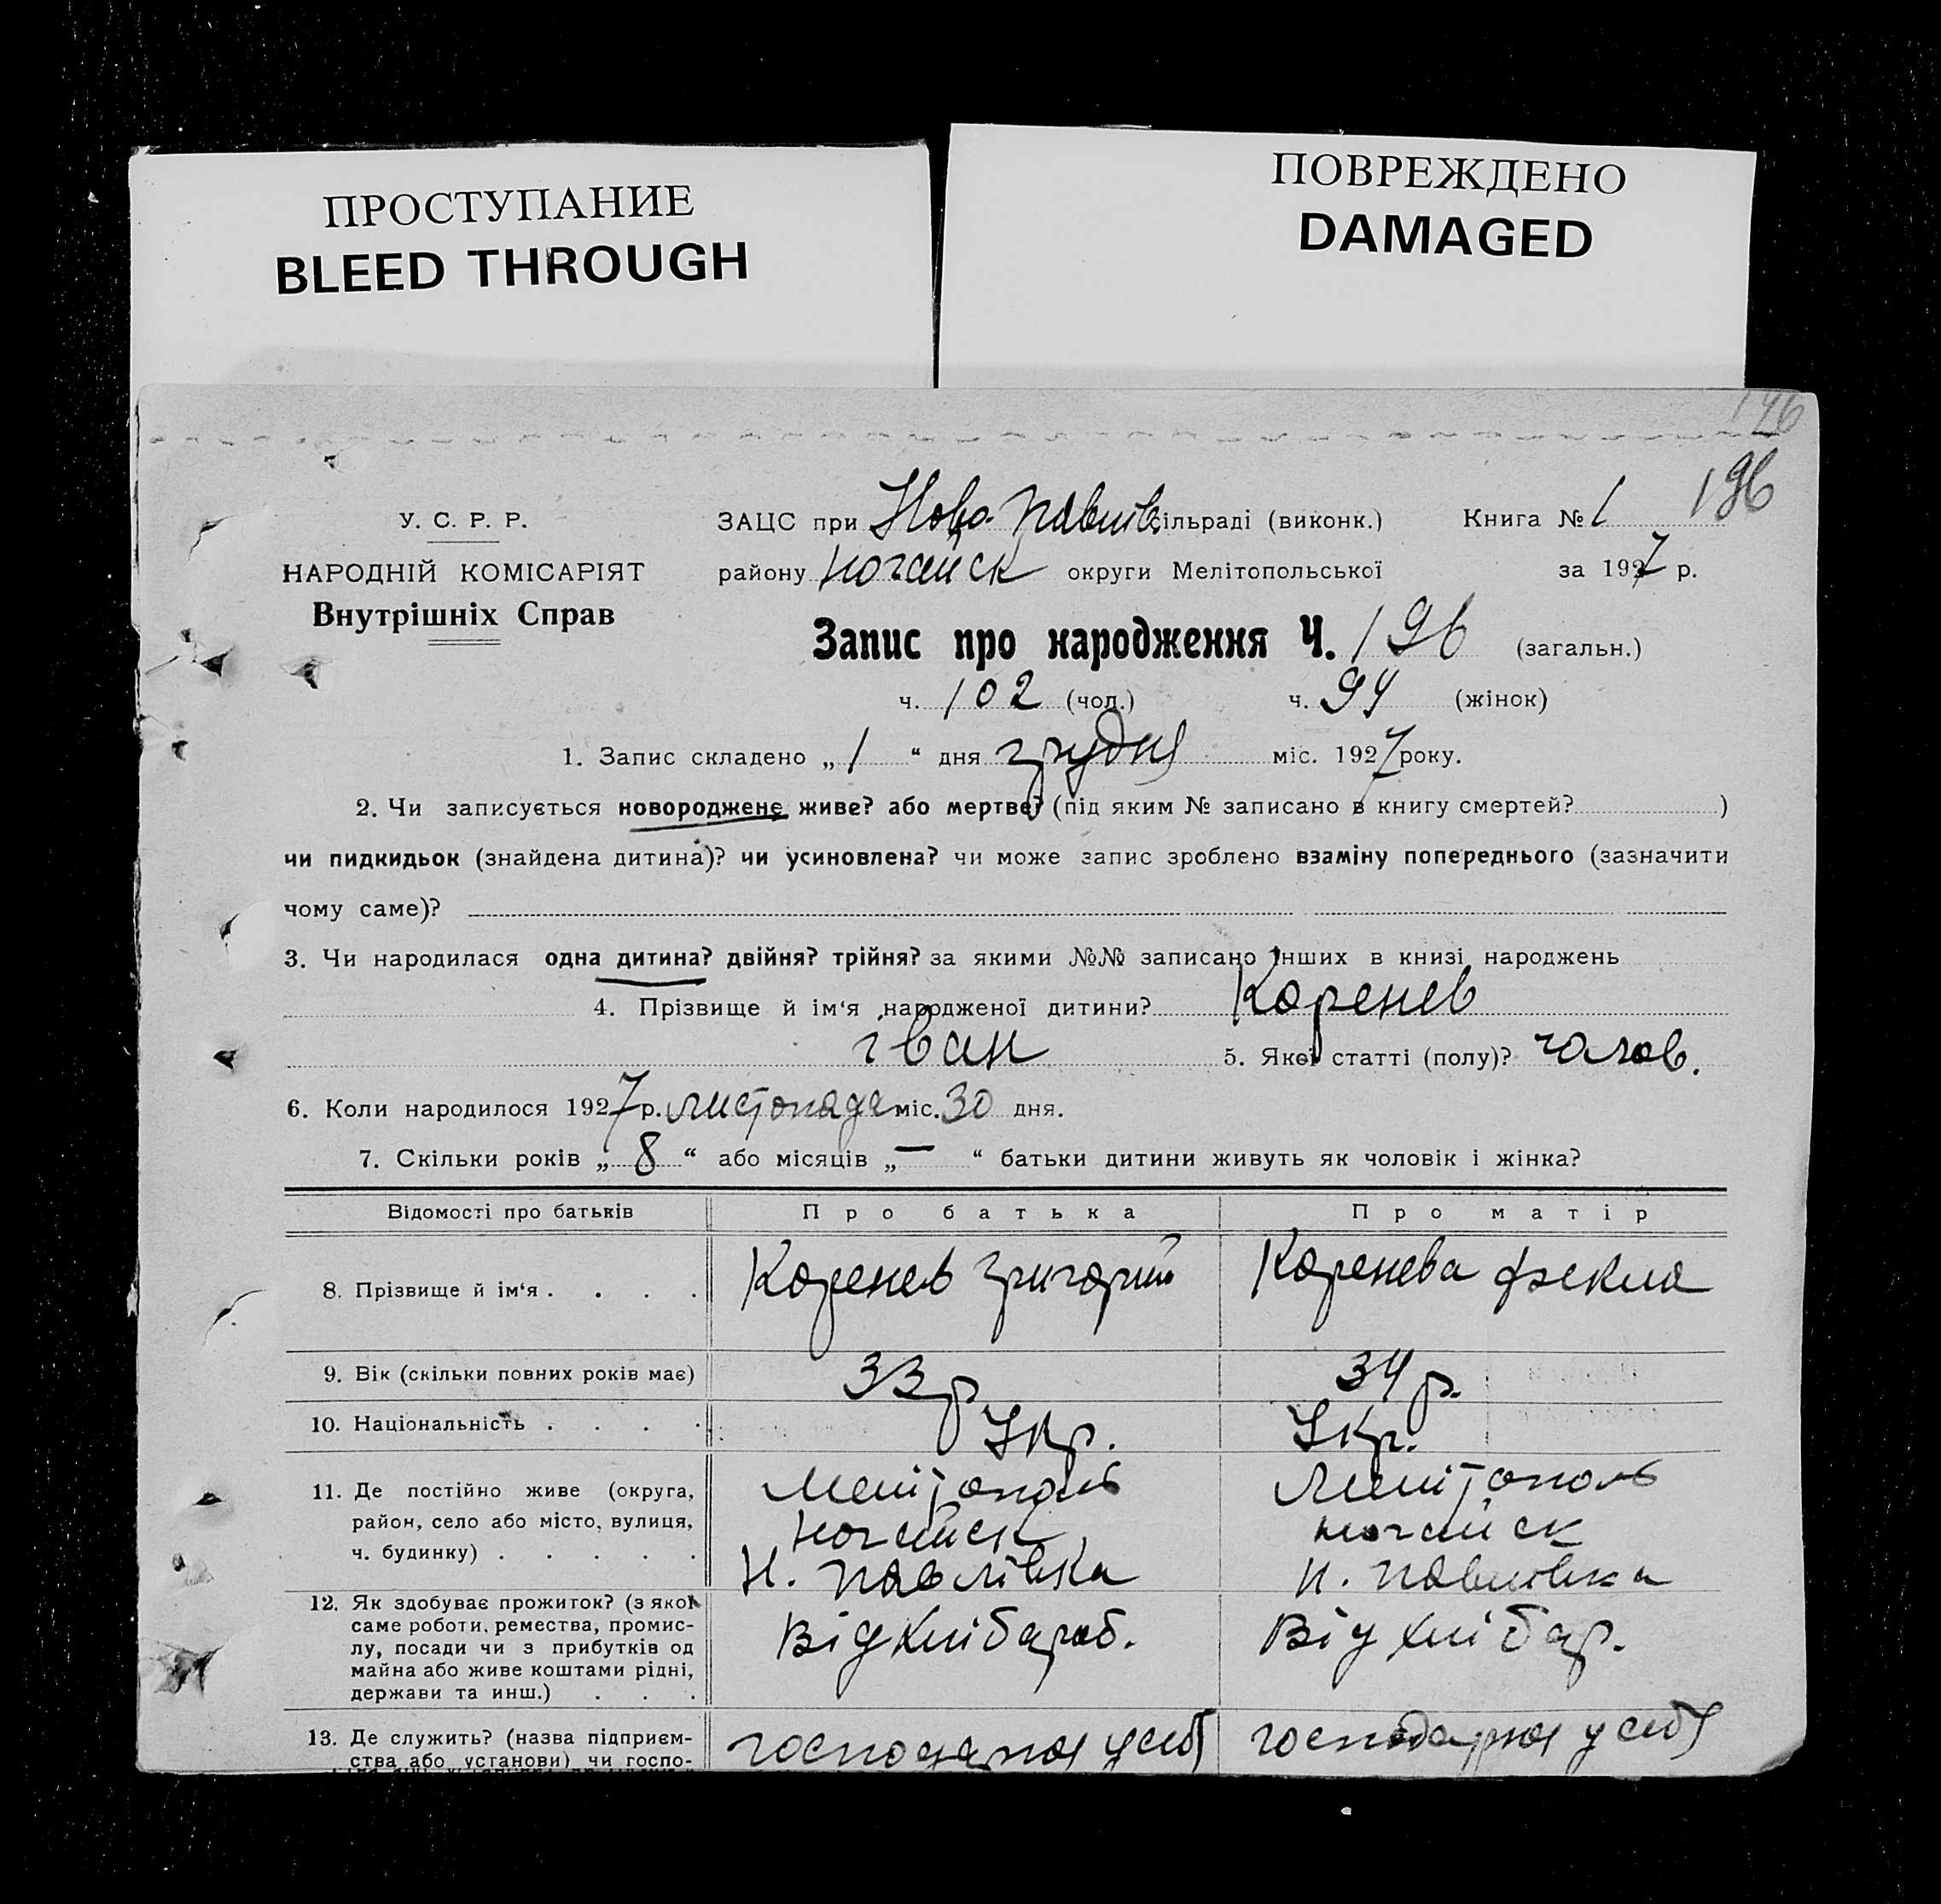 ПРОСТУПАНИЕ
BLEED THROUGH
ПОВРЕЖДЕНО
DAMAGED
196
У. С. Р. Р.
НАРОДНІЙ КОМІСАРІЯТ
Внутрішніх Справ
ЗАЦС при Ново-Павлів. сільраді (виконк.) Книга № 1
району Ногайськ округи Мелітопольської за 1927 р.
Запис про народження Ч. 196 (загальн.)
ч. 102 (чол.) ч. 94 (жінок)
1. Запис складено „ 1 “ дня грудня міс. 1927 року.
2. Чи записується новороджене живе? або мертве? (під яким № записано в книгу смертей? )
чи пидкидьок (знайдена дитина)? чи усиновлена? чи може запис зроблено взаміну попереднього (зазначити
чому саме)?
3. Чи народилася одна дитина? двійня? трійня? за якими №№ записано інших в книзі народжень
4. Прізвище й ім‘я народженої дитини? Коренев
іван 5. Якої статті (полу)? чолов.
6. Коли народилося 1927 р. листопада міс. 30 дня.
7. Скільки років „ 8 “ або місяців „ — “ батьки дитини живуть як чоловік і жінка?
Відомості про батьків Про батька Про матір
8. Прізвище й ім‘я . . . . Коренев Григорий Коренева Фекла
9. Вік (скільки повних років має) 33 р 34 р.
10. Національність . . . . Укр. Укр.
11. Де постійно живе (округа, Мелітополь Мелітополь
район, село або місто, вулиця, Ногайск Ногайск
ч. будинку) . . . . . Н. Павлівка Н. Павлівка
12. Як здобуває прожиток? (з якої
саме роботи, ремества, промис- Від хлібароб. Від хлібар.
лу, посади чи з прибутків од
майна або живе коштами рідні,
держави та инш.) . . .
13. Де служить? (назва підприєм- господарює у себе господарює у себе
ства або установи) чи госпо-